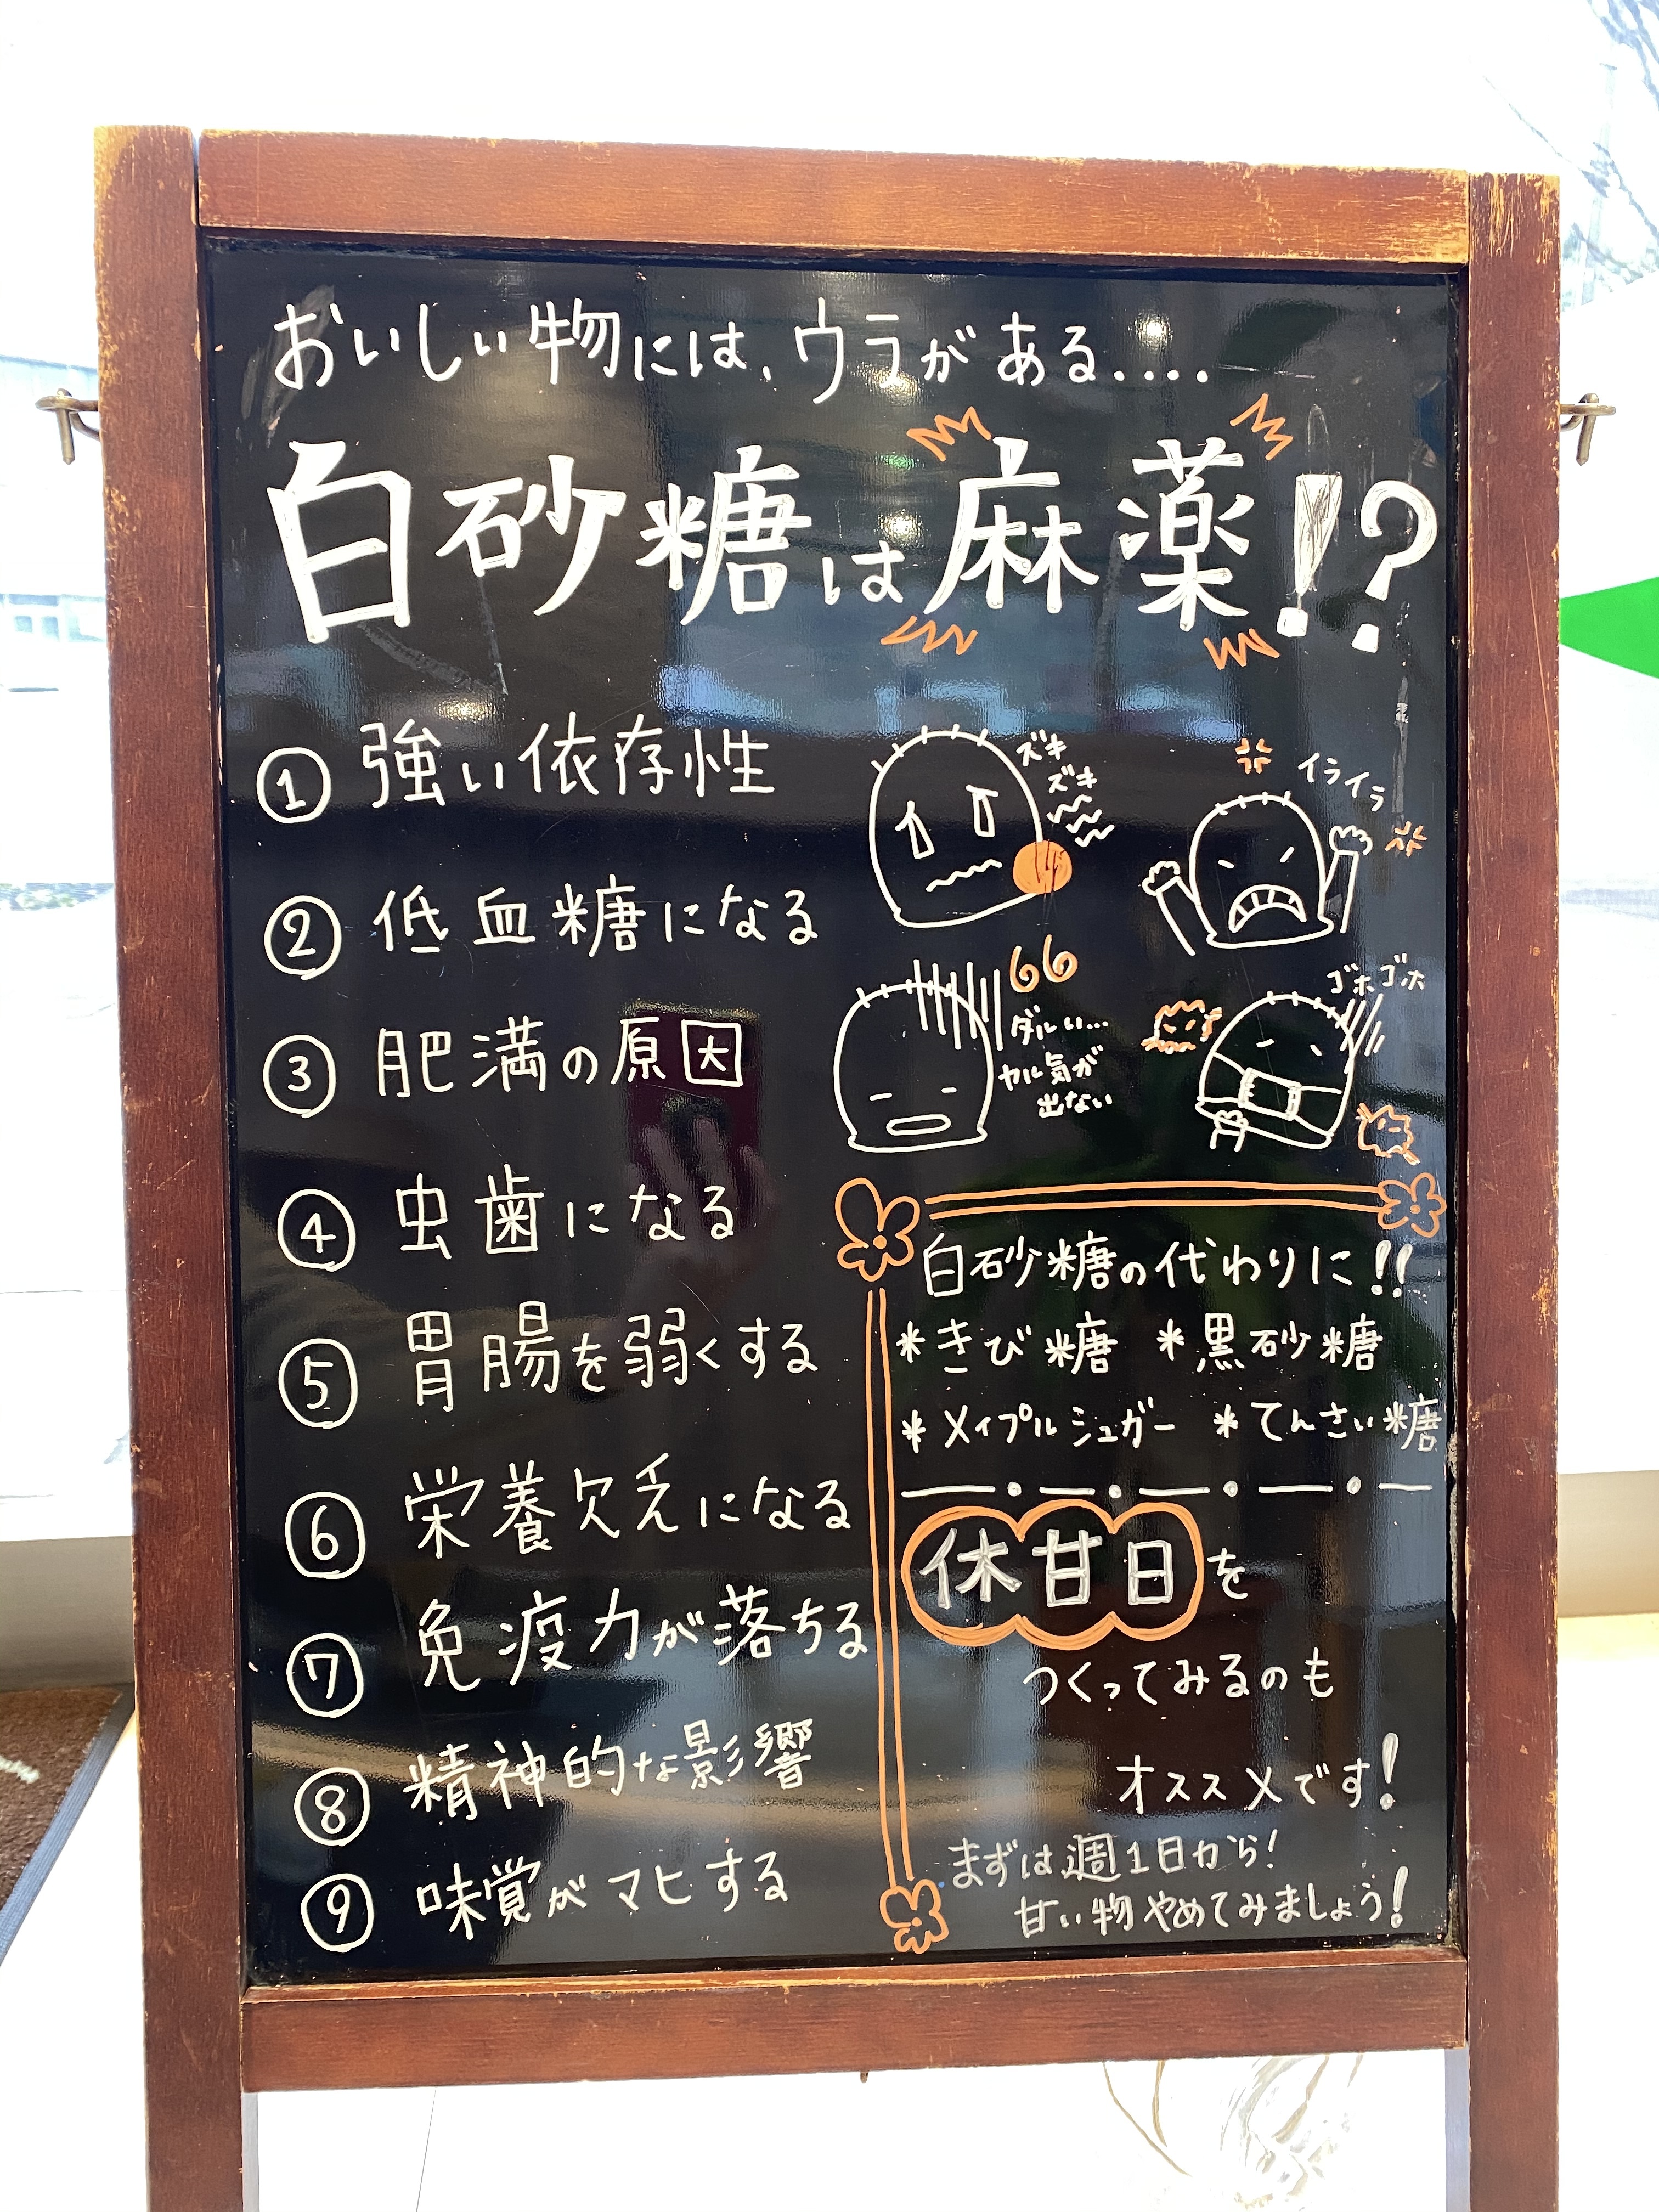 おいしい物には、ウラがある....
白砂糖は麻薬!?
① 強い依存性
② 低血糖になる
③ 肥満の原因
④ 虫歯になる
⑤ 胃腸を弱くする
⑥ 栄養欠乏になる
⑦ 免疫力が落ちる
⑧ 精神的な影響
⑨ 味覚がマヒする
ズキ
ズキ
イライラ
ダルい...
ヤル気が
出ない
ゴホゴホ
白砂糖の代わりに!!
*きび糖 *黒砂糖
*メイプルシュガー *てんさい糖
休甘日を
つくってみるのも
オススメです!
まずは週1日から!
甘い物やめてみましょう!